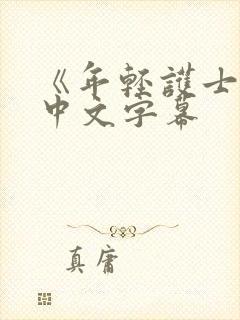 《年轻護士
中文字幕
真庸